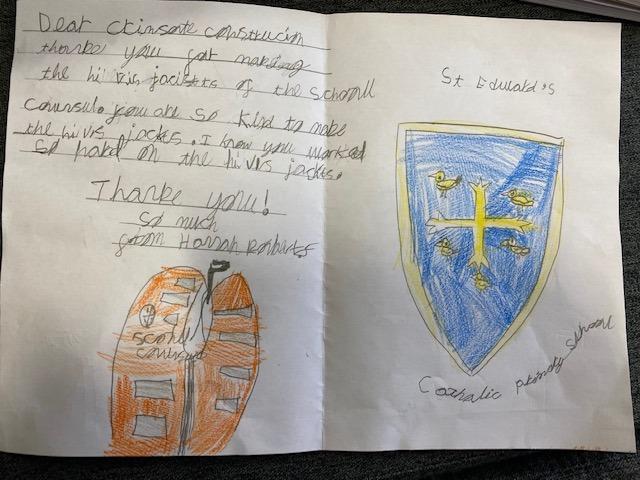 Dear Crinsate construcion
thanke you for making
the hi vis jackets of the school
Counsul. you are so kind to make
the hi vis jackes. I know you worked
so hard on the hi vis jackes.
Thanke you!
so much
from Hannah Roberts
scool
counsul
St Edward's
Catholic primdy school